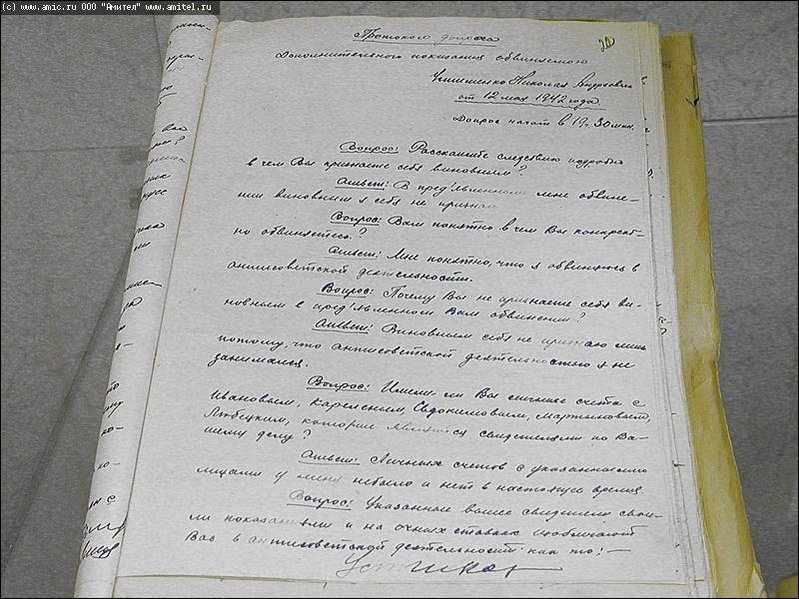 (c) www.amic.ru ООО "Амител" www.amitel.ru
Протокол допроса
Дополнительного показания обвиняемого
Николая Андреевича
от 12 мая 1942 года.
Допрос начат в 19 ч. 30 мин.
Вопрос: Расскажите следствию подробно
в чем Вы признаете себя виновным?
Ответ: В пред'явленном мне обвине-
нии виновным я себя не признаю
Вопрос: Вам понятно в чем Вы конкрет-
но обвиняетесь?
Ответ: Мне понятно, что я обвиняюсь в
антисоветской деятельности.
Вопрос: Почему Вы не признаете себя ви-
новным в пред'явленном Вам обвинении?
Ответ: Виновным себя не признаю лишь
потому, что антисоветской деятельностью я не
занимался.
Вопрос: Имели ли Вы личные счета с
Ивановым, Карелиным, Евдокимовым, Мартыновым,
которые являются свидетелями по Ва-
шему делу?
Ответ: Личных счетов с указанными
лицами у меня небыло и нет в настоящее время.
Вопрос: Указанные выше свидетели свои-
ми показаниями и на очных ставках изобличают
Вас в антисоветской деятельности как то: —